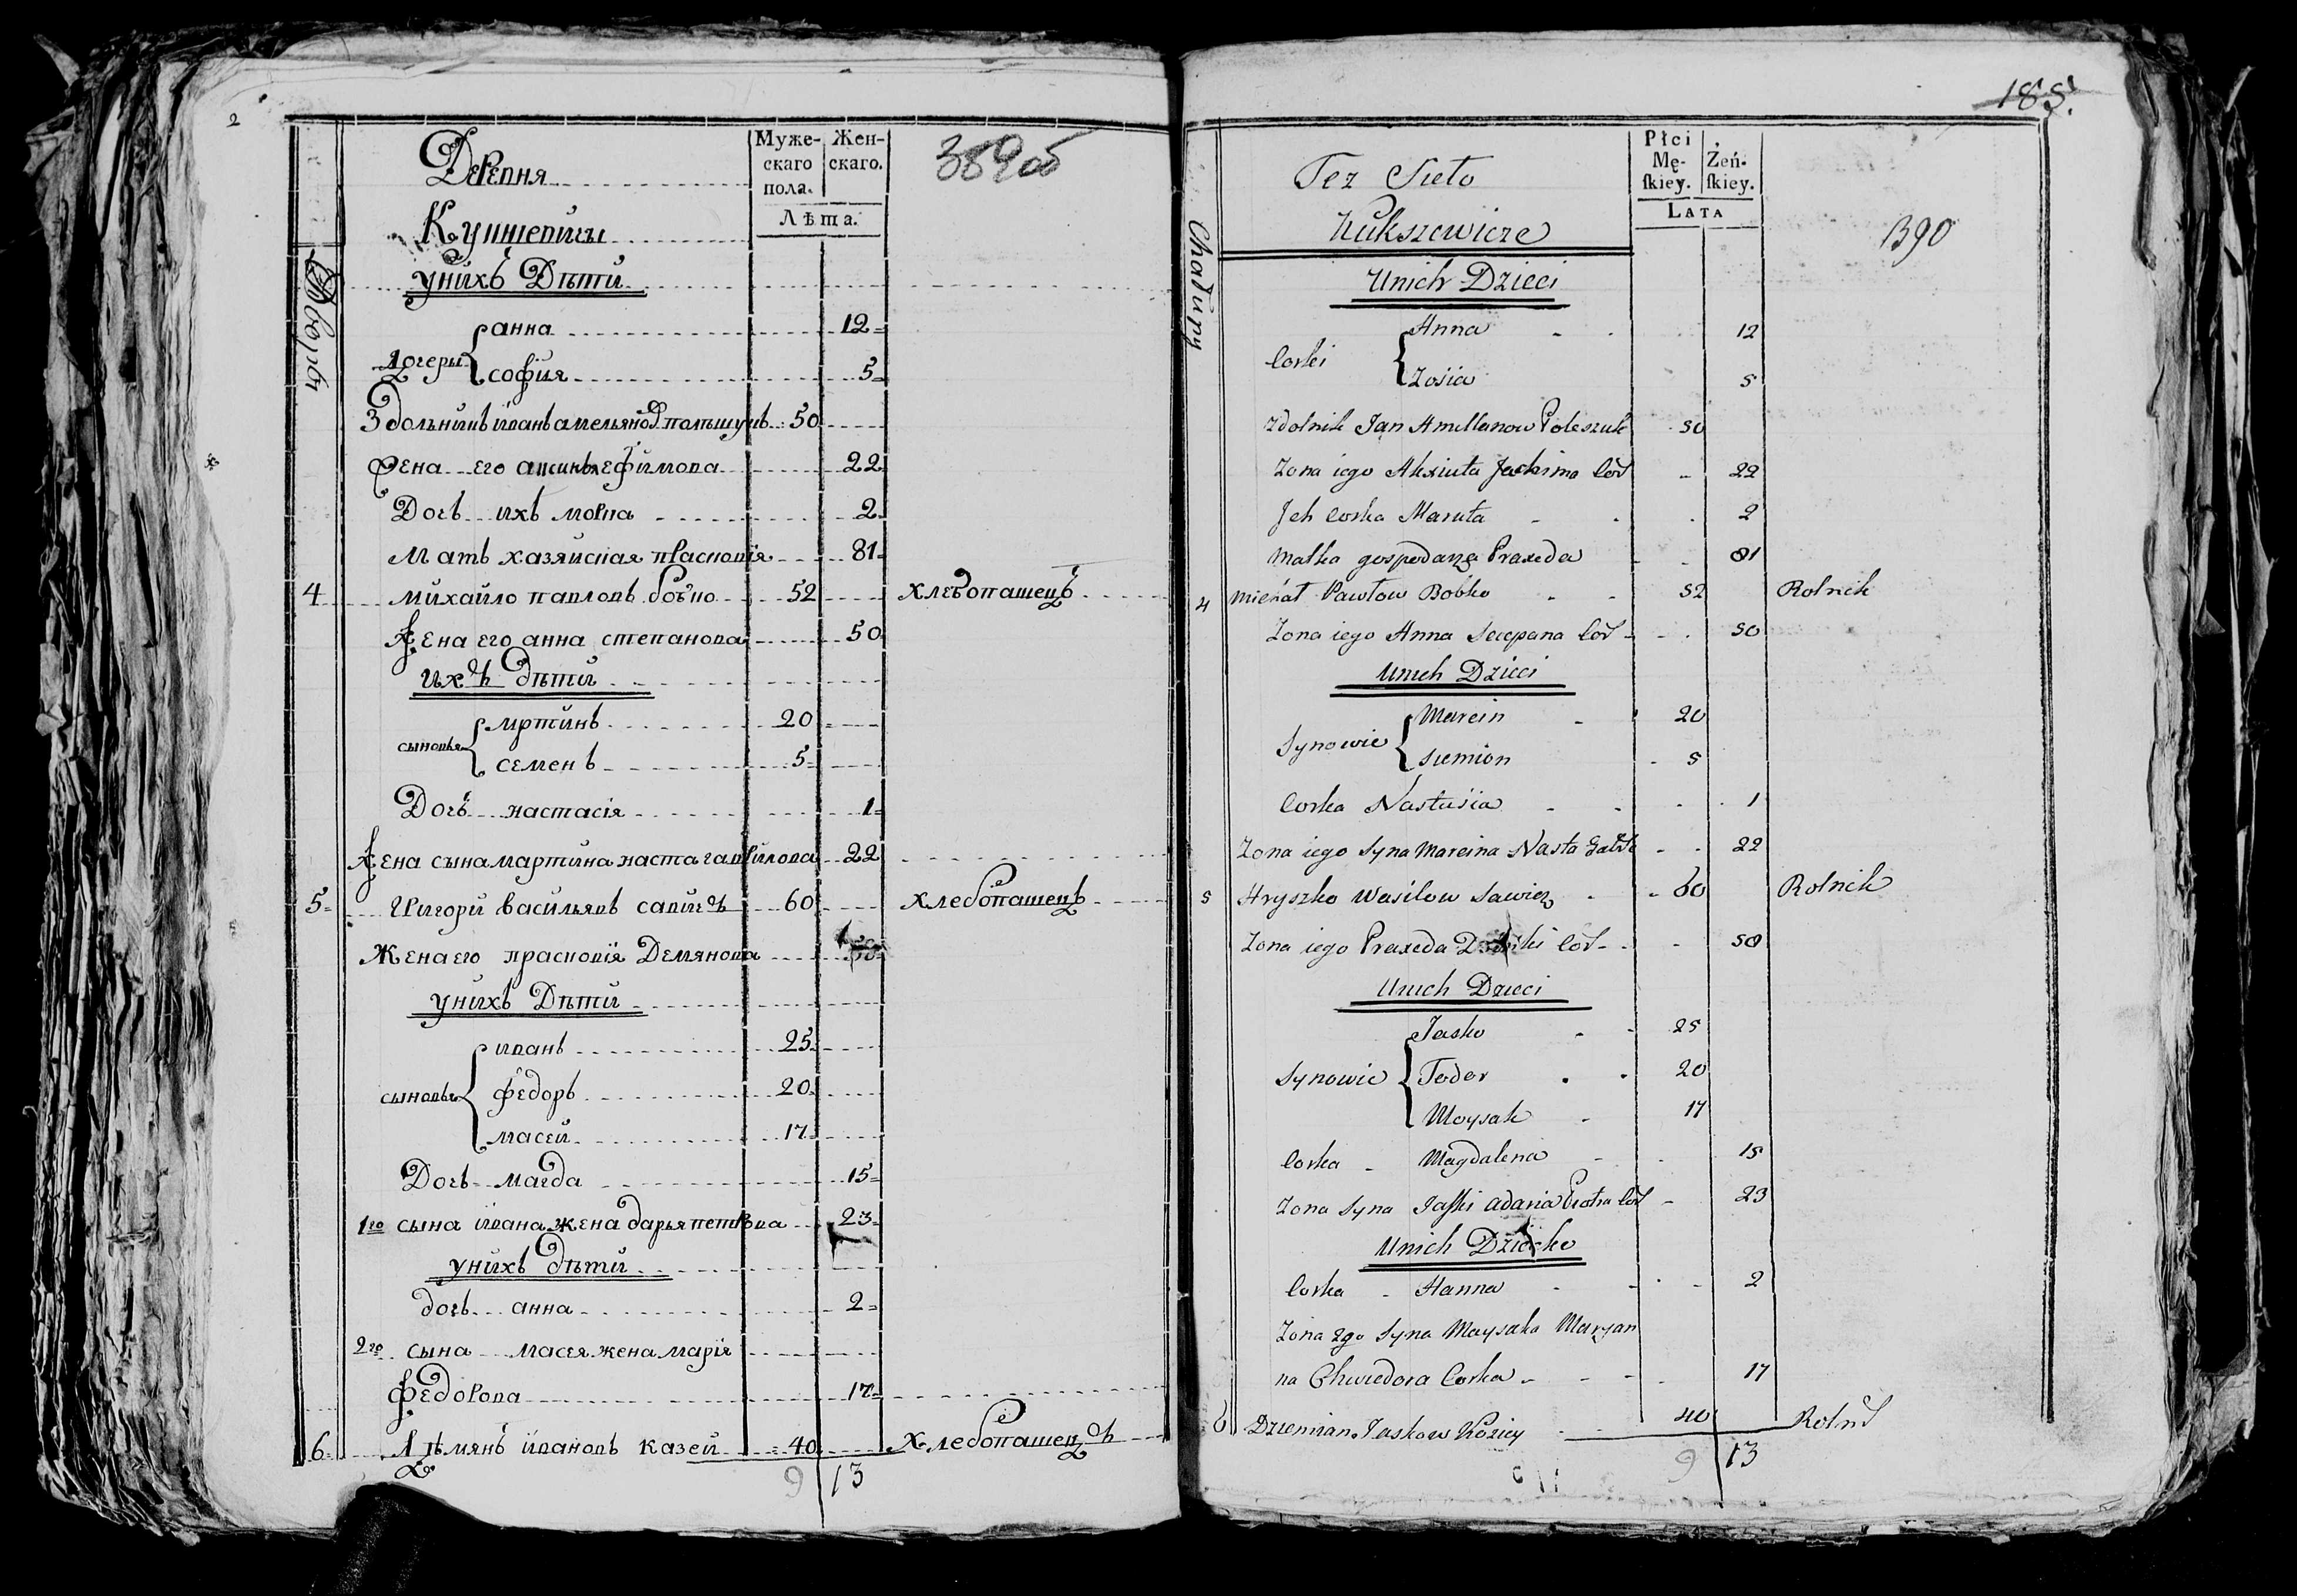 2
Деревня
Муже-
скаго
пола.
Жен-
скаго.
Лѣта.
389 об
Кукшевичы
Дворы
у нихъ Дѣти
Дочеры
анна 12
софия 5
Здольникъ иванъ амельяновъ полѣшукъ 50
жена его аксиня ефимова 22
Дочь ихъ мориа 2
Мать хазяйская прасковія 81
4 михайло павловъ бобко 52 хлебопашецъ
Жена его анна степанова 50
ихъ дѣти
сыновья
мртинъ 20
семенъ 5
Дочь настасія 1
Жена сына мартина наста гаврилова 22
5 Григори васильявъ савичъ 60 хлебопашецъ
Жена его прасковія Демянова 50
у нихъ Дѣти
сыновья
иванъ 25
федоръ 20
масей 17
Дочь магда 15
1го сына ивана жена дарья петрова 23
у нихъ дѣти
дочь анна 2
2го сына масея жена марія
федорова 17
6 Дѣмянъ ивановъ казей 40 Хлебопашецъ
9 13
185.
Też Sieło
Kukszewicze
Płci
Mę-
skiey.
Żeń-
skiey.
LATA
390
Chałupy
U nich Dzieci
Corki
Anna 12
Zosia 5
Zdolnik Jan Amellanow Poleszuk 50
Zona iego Aksiuta Jachima Cór 22
Jch Corka Maruta 2
Matka gospodarza Praxeda 81
4 Michał Pawłow Bobko 52 Rolnik
Zona iego Anna Szczepana Cor 50
U nich Dzieci
Synowie
Marcin 20
Siemion 5
Corka Nastusia 1
Zona iego Syna Marcina Nasta 22
5 Hryszko Wasilow Sawicz 60 Rolnik
Zona iego Praxeda Cor 50
U nich Dzieci
Synowie
Jasko 25
Todor 20
Moysak 17
Corka Magdalena 15
Zona Syna Jaśki adaria Piotra Cor 23
U nich Dziecko
Corka Hanna 2
Zona 2go Syna Maysaka Maryan
na Chwedora Corka 17
6 Dziemian Jaskow Koziey 40 Roln
9 13